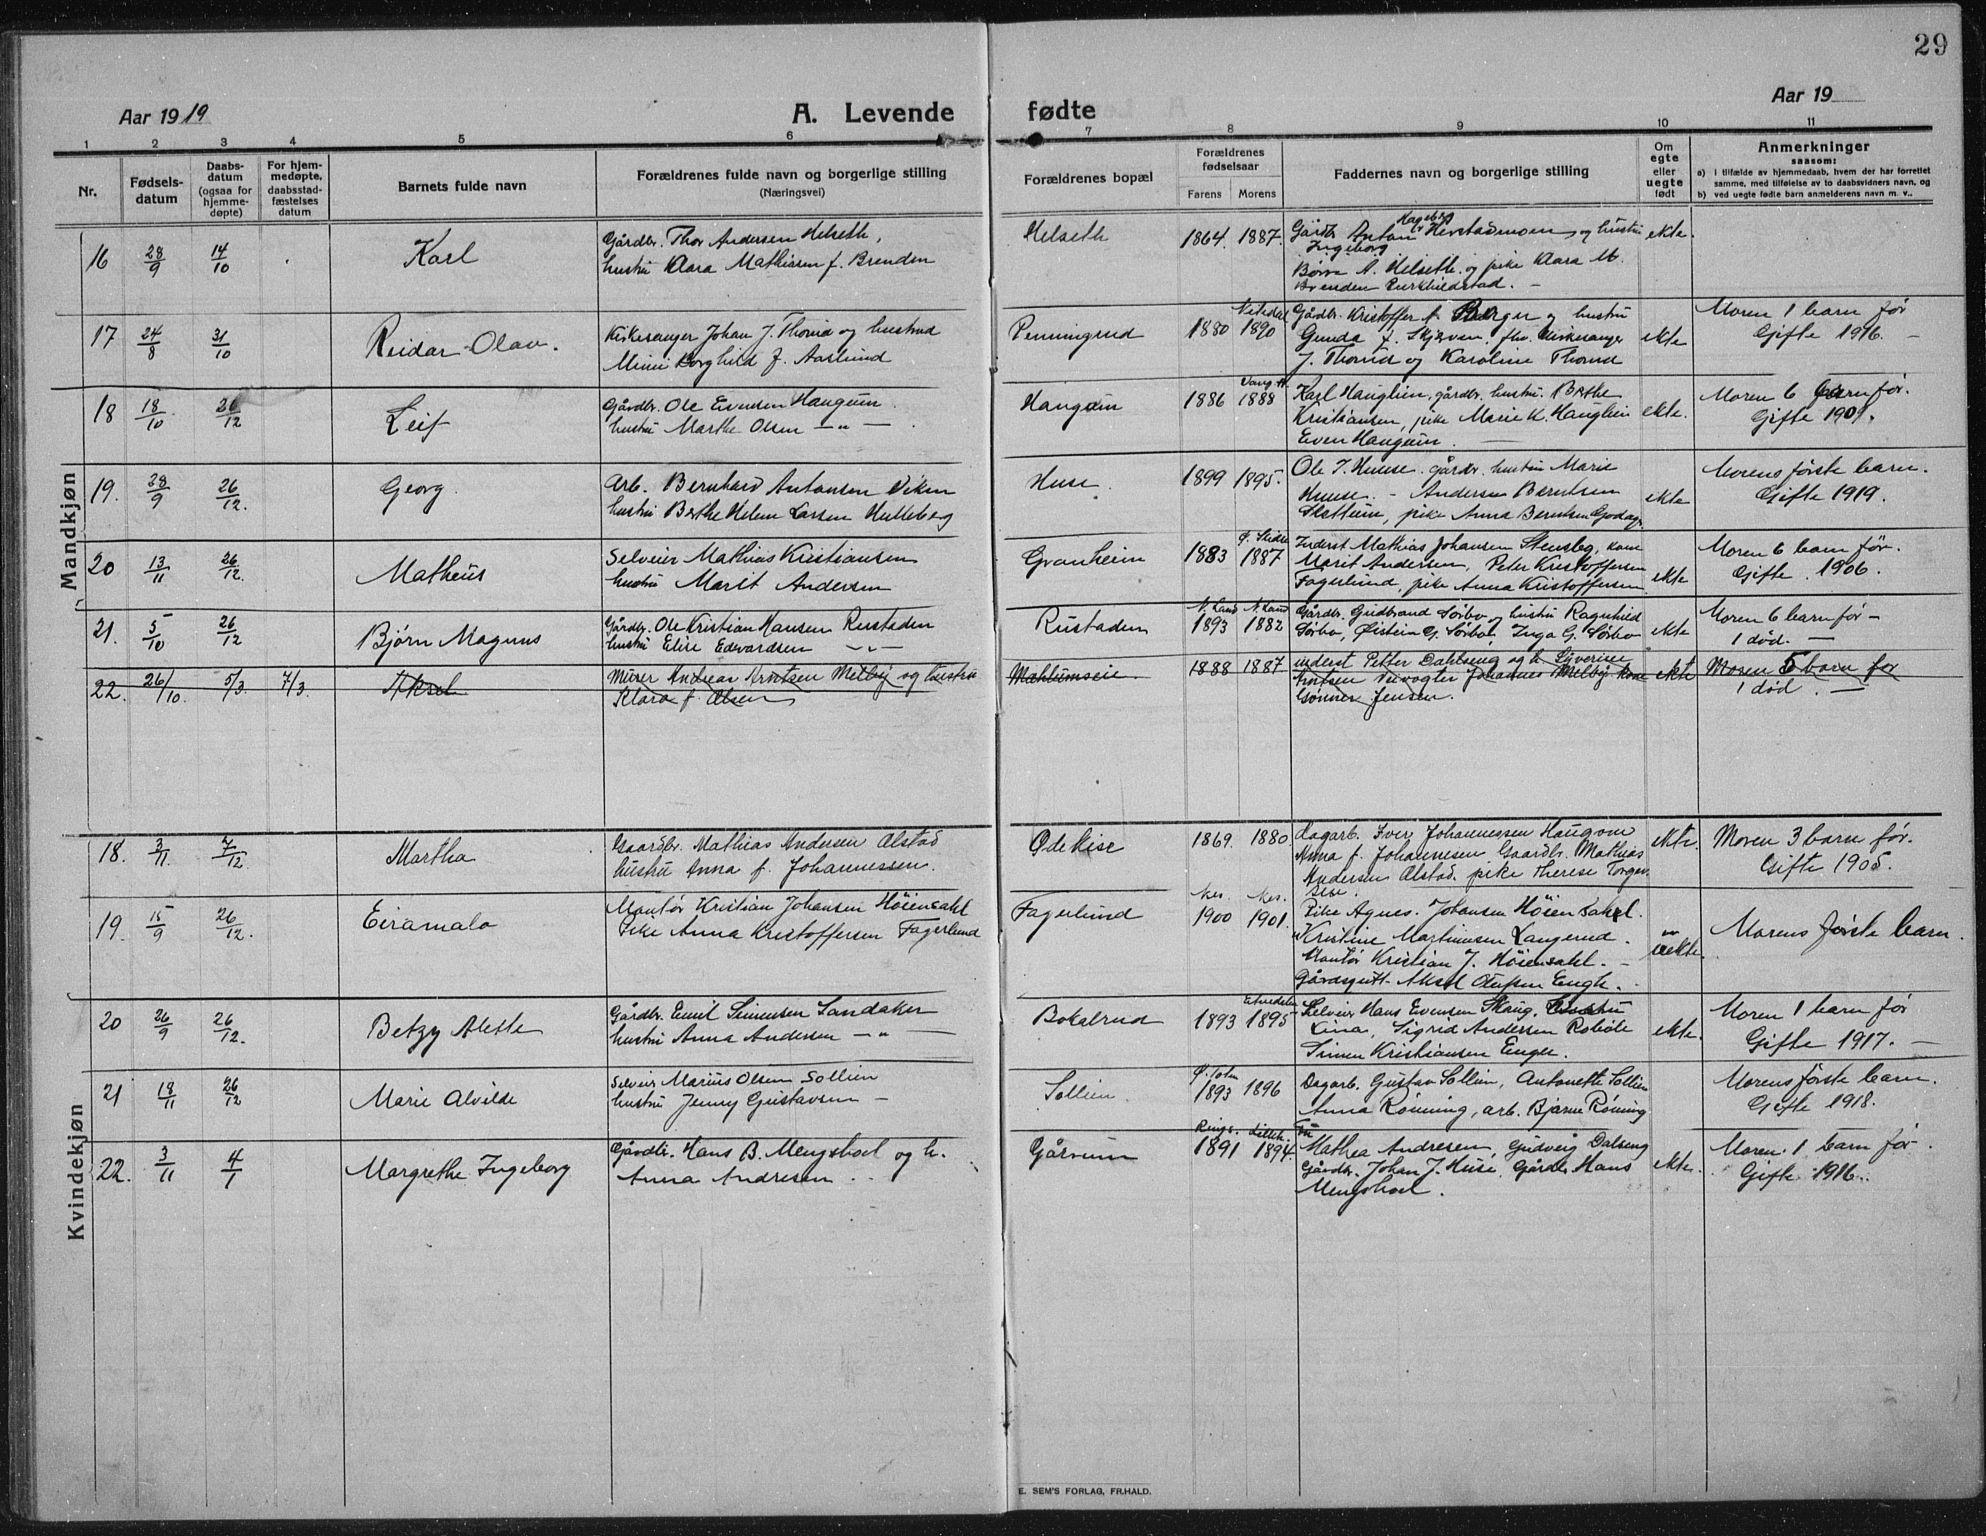 29
Aar 1919
A. Levende fødte
Aar 19
1 2 3 4 5 6 7 8 9 10 11
Nr.
Fødsels-
datum
Daabs-
datum
(ogsaa for
hjemme-
døpte)
For hjem-
medøpte,
daabsstad-
fæstelses
datum
Barnets fulde navn
Forældrenes fulde navn og borgerlige stilling
(Næringsvei)
Forældrenes bopæl
Forældrenes
fødselsaar
Farens Morens
Faddernes navn og borgerlige stilling
Om
egte
eller
uegte
født
Anmerkninger
saasom:
a) i tilfælde av hjemmedaab, hvem der har forrettet
samme, med tilføielse av to daabsvidners navn, og
b) ved uegte fødte barn anmelderens navn m. v..
Mandkjøn
16 28/9 14/10 Karl
Gårdbr. Thor Andersen Helseth,
hustru Klara Mathissen f. Brenden
Helseth 1864. 1887.
Hageby
Gårdbr Anton Herstadmoen og hustru
Ingeborg
Børre A. Helseth og pike Klara M.
Brenden
ekte.
17 24/8 31/10 Reidar Olav.
Kirkesanger Johan J. Thorud og hustru
Minni Borghild f. Aaslund
Penningrud 1880 Nitedal 1890
Gårdbr. Kristoffer A. Berger og hustru
Gunda f. Skjerven, fhv. Kirkesanger
J. Thorud og Karoline Thorud
ekte
Moren 1 barn før
Gifte 1916. —
18 18/10 26/12 Leif
Gårdbr. Ole Evensen Haugum.
hustru Marthe Olsen — " —
Haugum 1886 Vang H. 1888
Karl Hauglien, gårdbr. hustru Berthe
Kristiansen, pike Marie K. Hauglien
Even Haugum. —
ekte.
Moren 6 barn før.
Gifte 1909.
19. 28/9 26/12. Georg.
Arb. Bernhard Antonsen Viken
hustru Berthe Helene Larsen Hulleberg
Huse. 1899 1895.
Ole J. Huuse. gårdbr. hustru Marie
Huuse. - Andersen Berntsen
Slettum, pike Anna Berntsen Godager
ekte
Morens første barn.
Gifte 1919.
20 13/11 26/12. Matheus
Selveier Mathias Kristiansen
hustru Marit Andersen
Granheim 1883 Ø. Slidre 1887
Inderst Mathias Johansen Stensby, kone
Marit Andersen, Peter Kristoffersen
Fagerlund, pike Anna Kristoffersen
ekte
Moren 6 barn før.
Gifte. 1906.
21. 5/10 26/12 Bjørn Magnus
Gårdbr. Ole Kristian Hansen Rustaden
hustru Elise Edvardsen — " —
Rustaden N. Land 1893 N. Land 1882
Gårdbr. Gudbrand Sørbo og hustru Ragnhild
Sørbo, Øistein G. Sørbo, Inga G. Sørbo
ekte
Moren 6 barn før —
1 død. —
22. 26/10. 5/3. 7/3. Aksel
Murer Andreas Arntsen Melby og hustru
Klara f. Olsen
Mæhlumseie. 1888 1887.
inderst Petter Dahlseng og h. Syverine
Arntsen Johannes Melby kone
Gønner Jensen.
ekte
Moren 5 barn før
1 død. —
Kvindekjøn
18. 3/11. 7/12 Martha
Gaardbr. Mathias Andersen Alstad
hustru Anna f. Johannessen.
Øde Kise 1869. 1880.
Dagarb. Iver Johannessen Haugom
Anna f. Johannesen Gaardbr. Mathias
Andersen Alstad. pike Therese Torger
ekte.
Moren 3 barn før.
Gifte 1905.
19. 15/9 26/12. Eiramalo
Montør Kristian Johansen Høiensahl
Pike Anna Kristoffersen Fagerlund
Fagerlund Nes. 1900 Nes. 1901.
Pike Agnes. Johansen Høiensahl.
" Kristine Martinusen Langerud.
Montør Kristian J. Høiensahl. —
Gårdsgutt Aksel Olufsen Engh.
uekte.
Morens første barn.
20 26/9 26/12. Betzy Alette
Gårdbr. Emil Simensen Sandaker
hustru Anna Andersen — " —
Bokalrud 1893 Etnedalen 1895
Selveier Hans Evensen Skaug, hustru
Lina, Sigrid Andersen Robøle
Simen Kristiansen Enger.
ekte.
Moren 1 barn før
Gifte 1917. —
21 18/11 26/12 Marie Alvilde
Selveier Marius Olsen Sollien
hustru Jenny Gustavsen —
Sollien. Ø. Toten 1893 1896
Dagarb. Gustav Sollien, Antonette Sollien
Anna Rønning, arb. Bjarne Rønning
Morens første barn.
Gifte 1918.
22. 3/11 4/1 Margrethe Ingeborg
Gårdbr. Hans B. Mengshoel og h.
Anna Andresen.
Gårum Rings. 1891 Lilleh. 1894.
Mathea Andresen, Gudveig Dalseng
Gårdbr. Johan J. Huse, Gårdbr Hans
Mengshoel.
ekte.
Moren. 1 barn før.
Gifte 1916.
E. SEM'S FORLAG, FR.HALD.